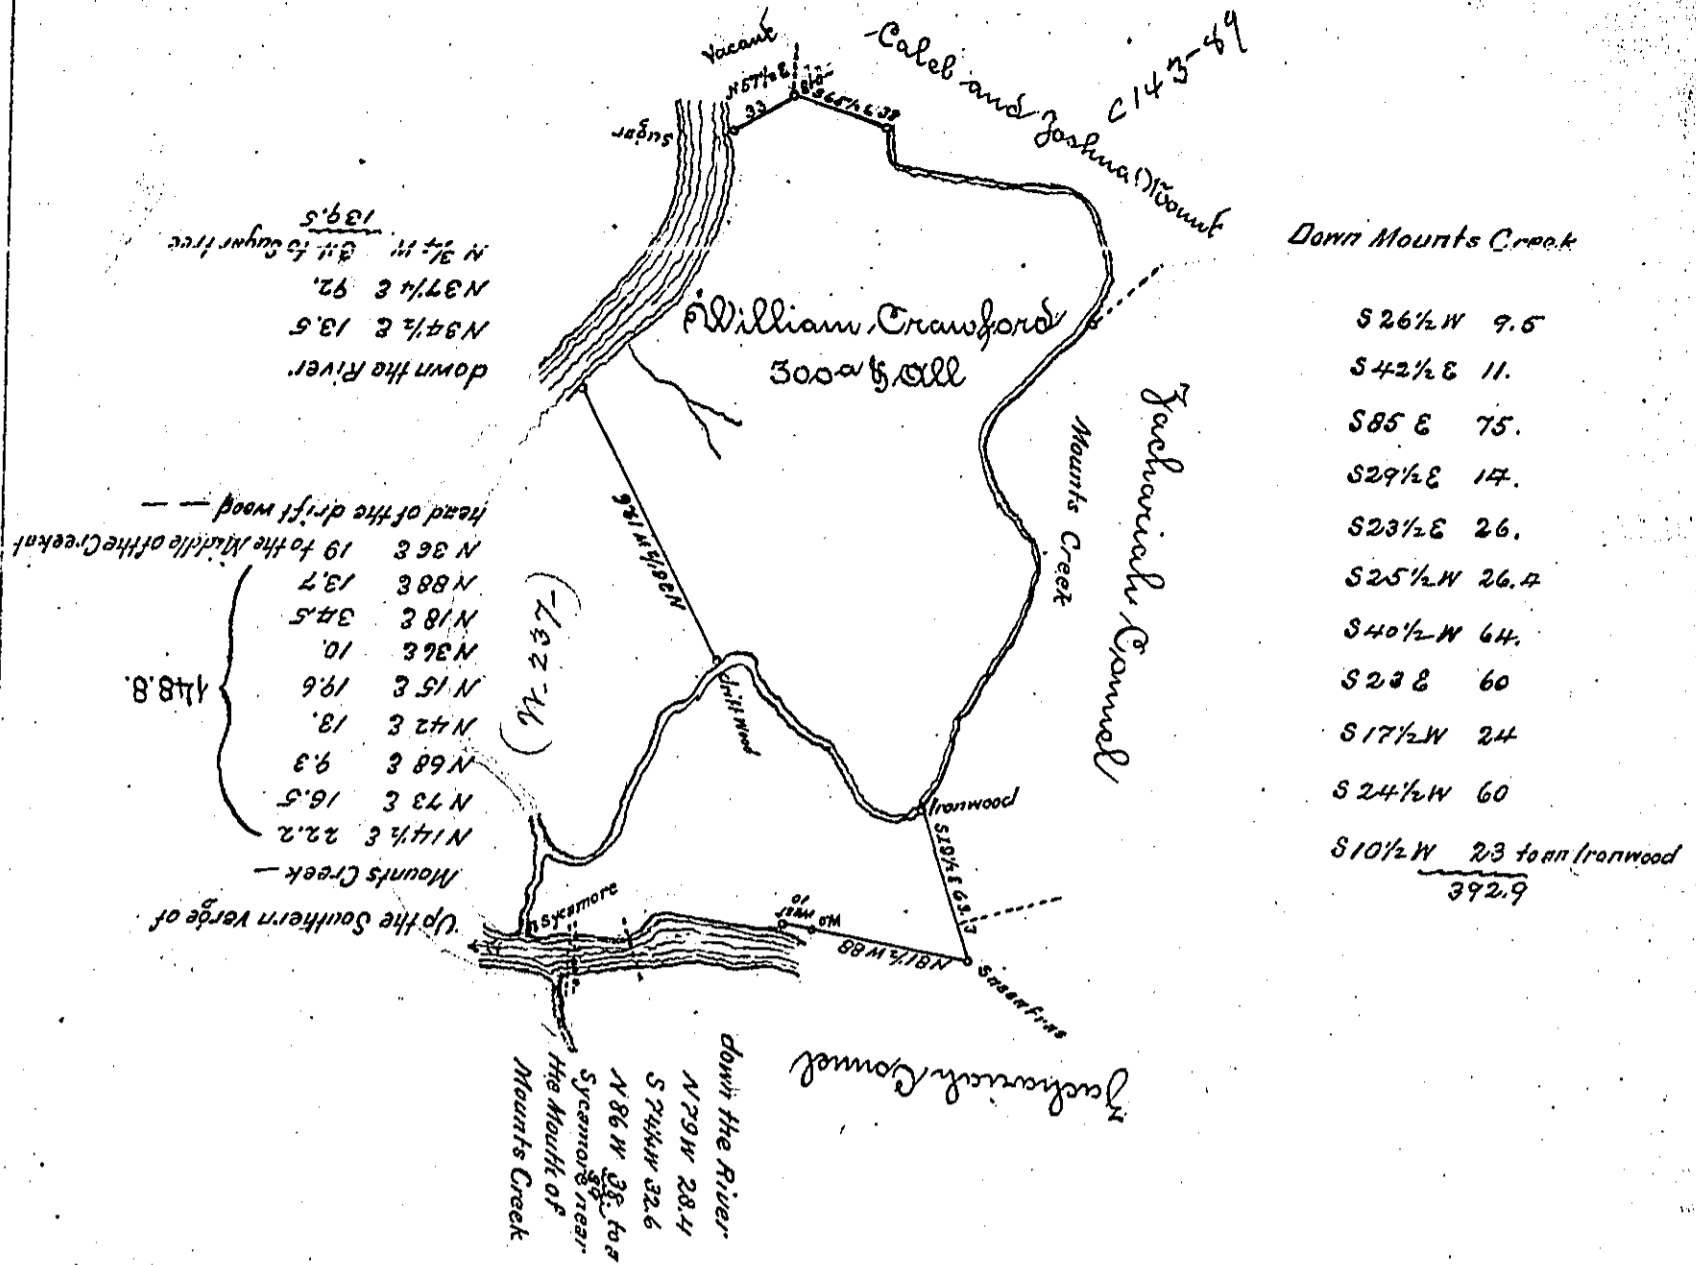 C143-89
Caleb and Joshua Mount
Vacant
N57½E
33
S65½E 38
Sugar
William Crawford
300a & All
Zachariah Connel
Mounts Creek
Down Mounts Creek
S26½W 9.5
S42½E 11.
S85E 75.
S29½E 14.
S23½E 26.
S25½W 26.4
S40½W 64.
S23E 60
S17½W 24
S24½W 60
S10½W 23 to an Ironwood
392.9
down the River
N34½E 13.5
N37¼E 92.
N¾W to Sugar tree
139.5
N28½W 126
driftwood
Ironwood
S19½E 63.
Sassafras
N81½W 88
W.O.
West
10
Sycamore
Up the Southern verge of
Mounts Creek —
N14½E 22.2
N73E 16.5
N68E 9.3
N42E 13.
N15E 19.6
N36E 10.
N18E 34.5
N88E 13.7
N36E 19 to the Middle of the Creek at
head of the drift wood — —
148.8.
Zachariah Connel
down the River
N79W 28.4
S74½W 32.6
N86W 38. to a
Sycamore near
the Mouth of
Mounts Creek